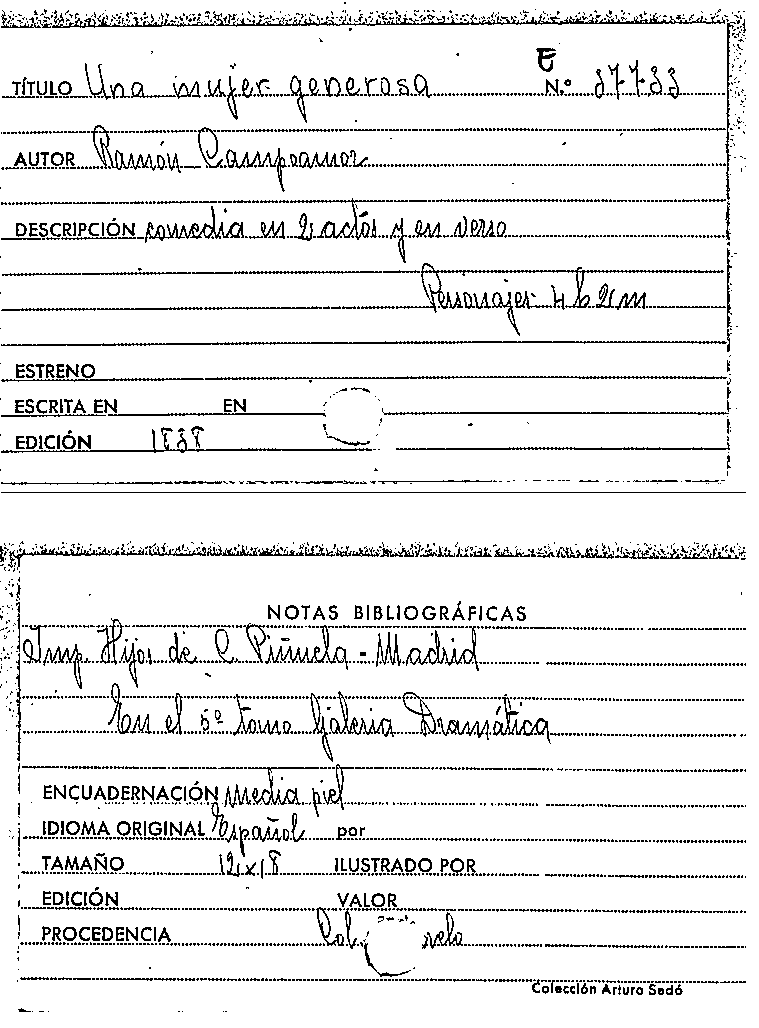 TÍTULO Una mujer generosa E N.º 37733
AUTOR Ramón Campoamor
DESCRIPCIÓN comedia en 2 actos y en verso
Personajes 4 h 2 m
ESTRENO
ESCRITA EN EN
EDICIÓN 1838
NOTAS BIBLIOGRÁFICAS
Imp. Hijos de C. Piñuela - Madrid
En el 5º tomo Galeria Dramática
ENCUADERNACIÓN Media piel
IDIOMA ORIGINAL Español por
TAMAÑO 12x18 ILUSTRADO POR
EDICIÓN VALOR
PROCEDENCIA
Colección Arturo Sedó